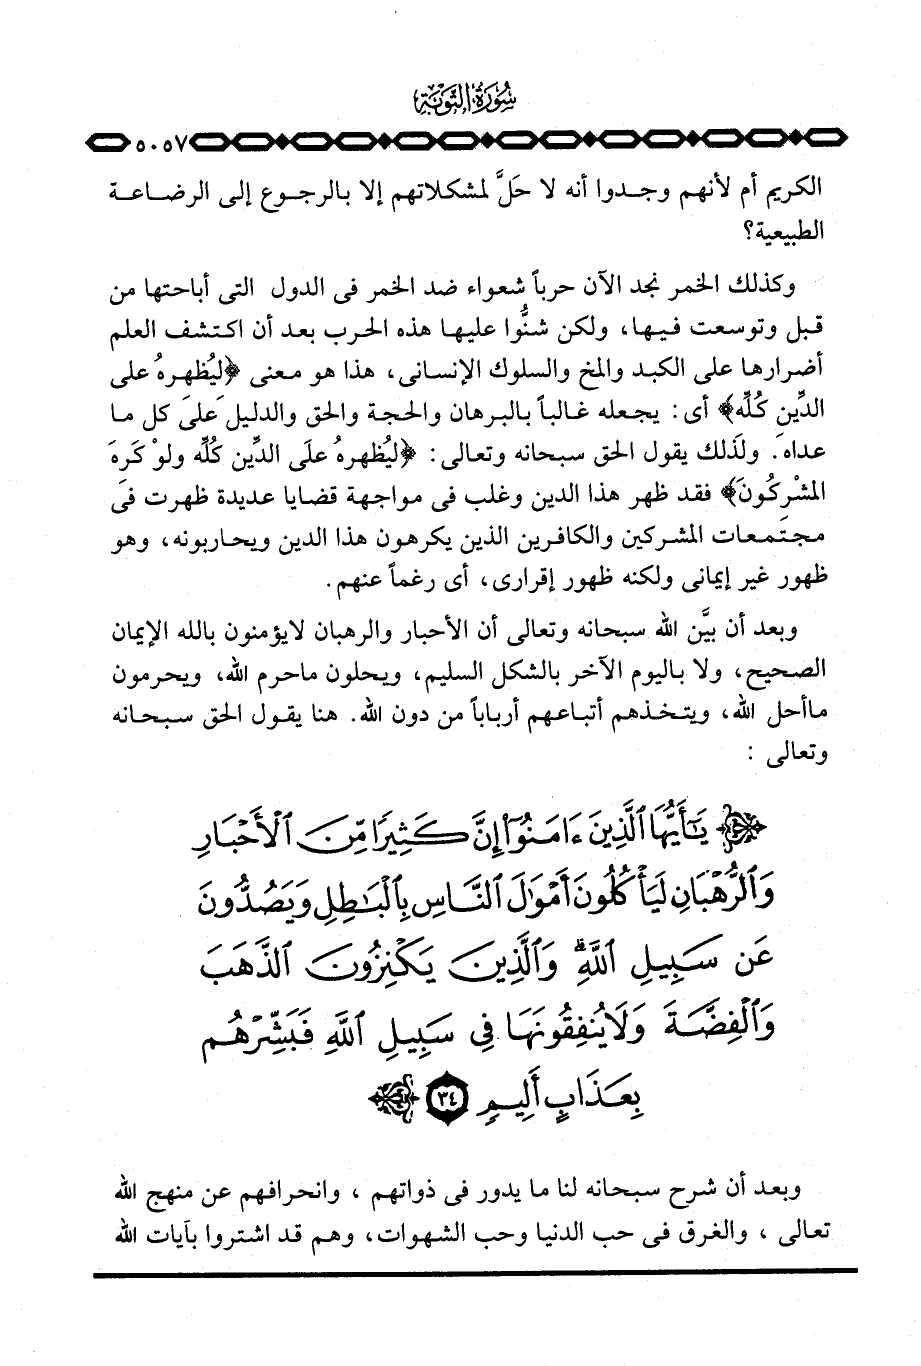 سُورَةُ التَّوْبَةِ
٥٠٥٧
الكريم أم لأنهم وجدوا أنه لا حَلَّ لمشكلاتهم إلا بالرجوع إلى الرضاعة
الطبيعية؟
وكذلك الخمر نجد الآن حرباً شعواء ضد الخمر فى الدول التى أباحتها من
قبل وتوسعت فيها، ولكن شنُّوا عليها هذه الحرب بعد أن اكتشف العلم
أضرارها على الكبد والمخ والسلوك الإنسانى، هذا هو معنى ﴿ليُظهرهُ على
الدِّينِ كُلِّه﴾ أى: يجعله غالباً بالبرهان والحجة والحق والدليل عَلىَ كل ما
عداه. ولذلك يقول الحق سبحانه وتعالى: ﴿ليُظهرهُ علَى الدِّين كُلِّه ولوْ كَرِهَ
المشْرِكُونَ﴾ فقد ظهر هذا الدين وغلب فى مواجهة قضايا عديدة ظهرت فى
مجتمعات المشركين والكافرين الذين يكرهون هذا الدين ويحاربونه، وهو
ظهور غير إيمانى ولكنه ظهور إقرارى، أى رغماً عنهم.
وبعد أن بيَّن الله سبحانه وتعالى أن الأحبار والرهبان لايؤمنون بالله الإيمان
الصحيح، ولا باليوم الآخر بالشكل السليم، ويحلون ماحرم الله، ويحرمون
ماأحل الله، ويتخذهم أتباعهم أرباباً من دون الله. هنا يقول الحق سبحانه
وتعالى :
﴿ يَٰٓأَيُّهَا ٱلَّذِينَ ءَامَنُوٓا۟ إِنَّ كَثِيرًا مِّنَ ٱلْأَحْبَارِ
وَٱلرُّهْبَانِ لَيَأْكُلُونَ أَمْوَٰلَ ٱلنَّاسِ بِٱلْبَٰطِلِ وَيَصُدُّونَ
عَن سَبِيلِ ٱللَّهِ ۗ وَٱلَّذِينَ يَكْنِزُونَ ٱلذَّهَبَ
وَٱلْفِضَّةَ وَلَا يُنفِقُونَهَا فِى سَبِيلِ ٱللَّهِ فَبَشِّرْهُم
بِعَذَابٍ أَلِيمٍ ٣٤ ﴾
وبعد أن شرح سبحانه لنا ما يدور فى ذواتهم ، وانحرافهم عن منهج الله
تعالى ، والغرق فى حب الدنيا وحب الشهوات، وهم قد اشتروا بآيات الله